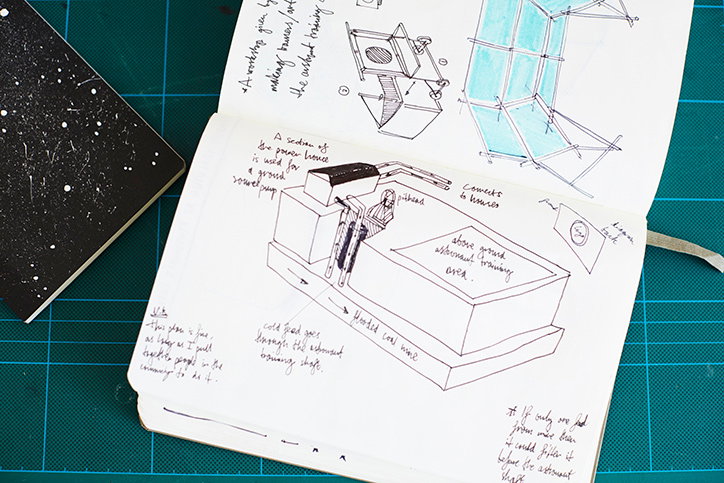 * A workshop given by
making banners/art
the astronaut training
①
②
A section of
the power house
is used for
a ground
source pump
Connects
to houses
pithead
above ground
astronaut training
area.
cold feed goes
through the astronaut
training shaft.
flooded coal mine
Note
this plan is fine,
as long as I pull
together people in the
community to do it.
* If only one feed
from mine then
it could filter it
before the astronaut
shaft